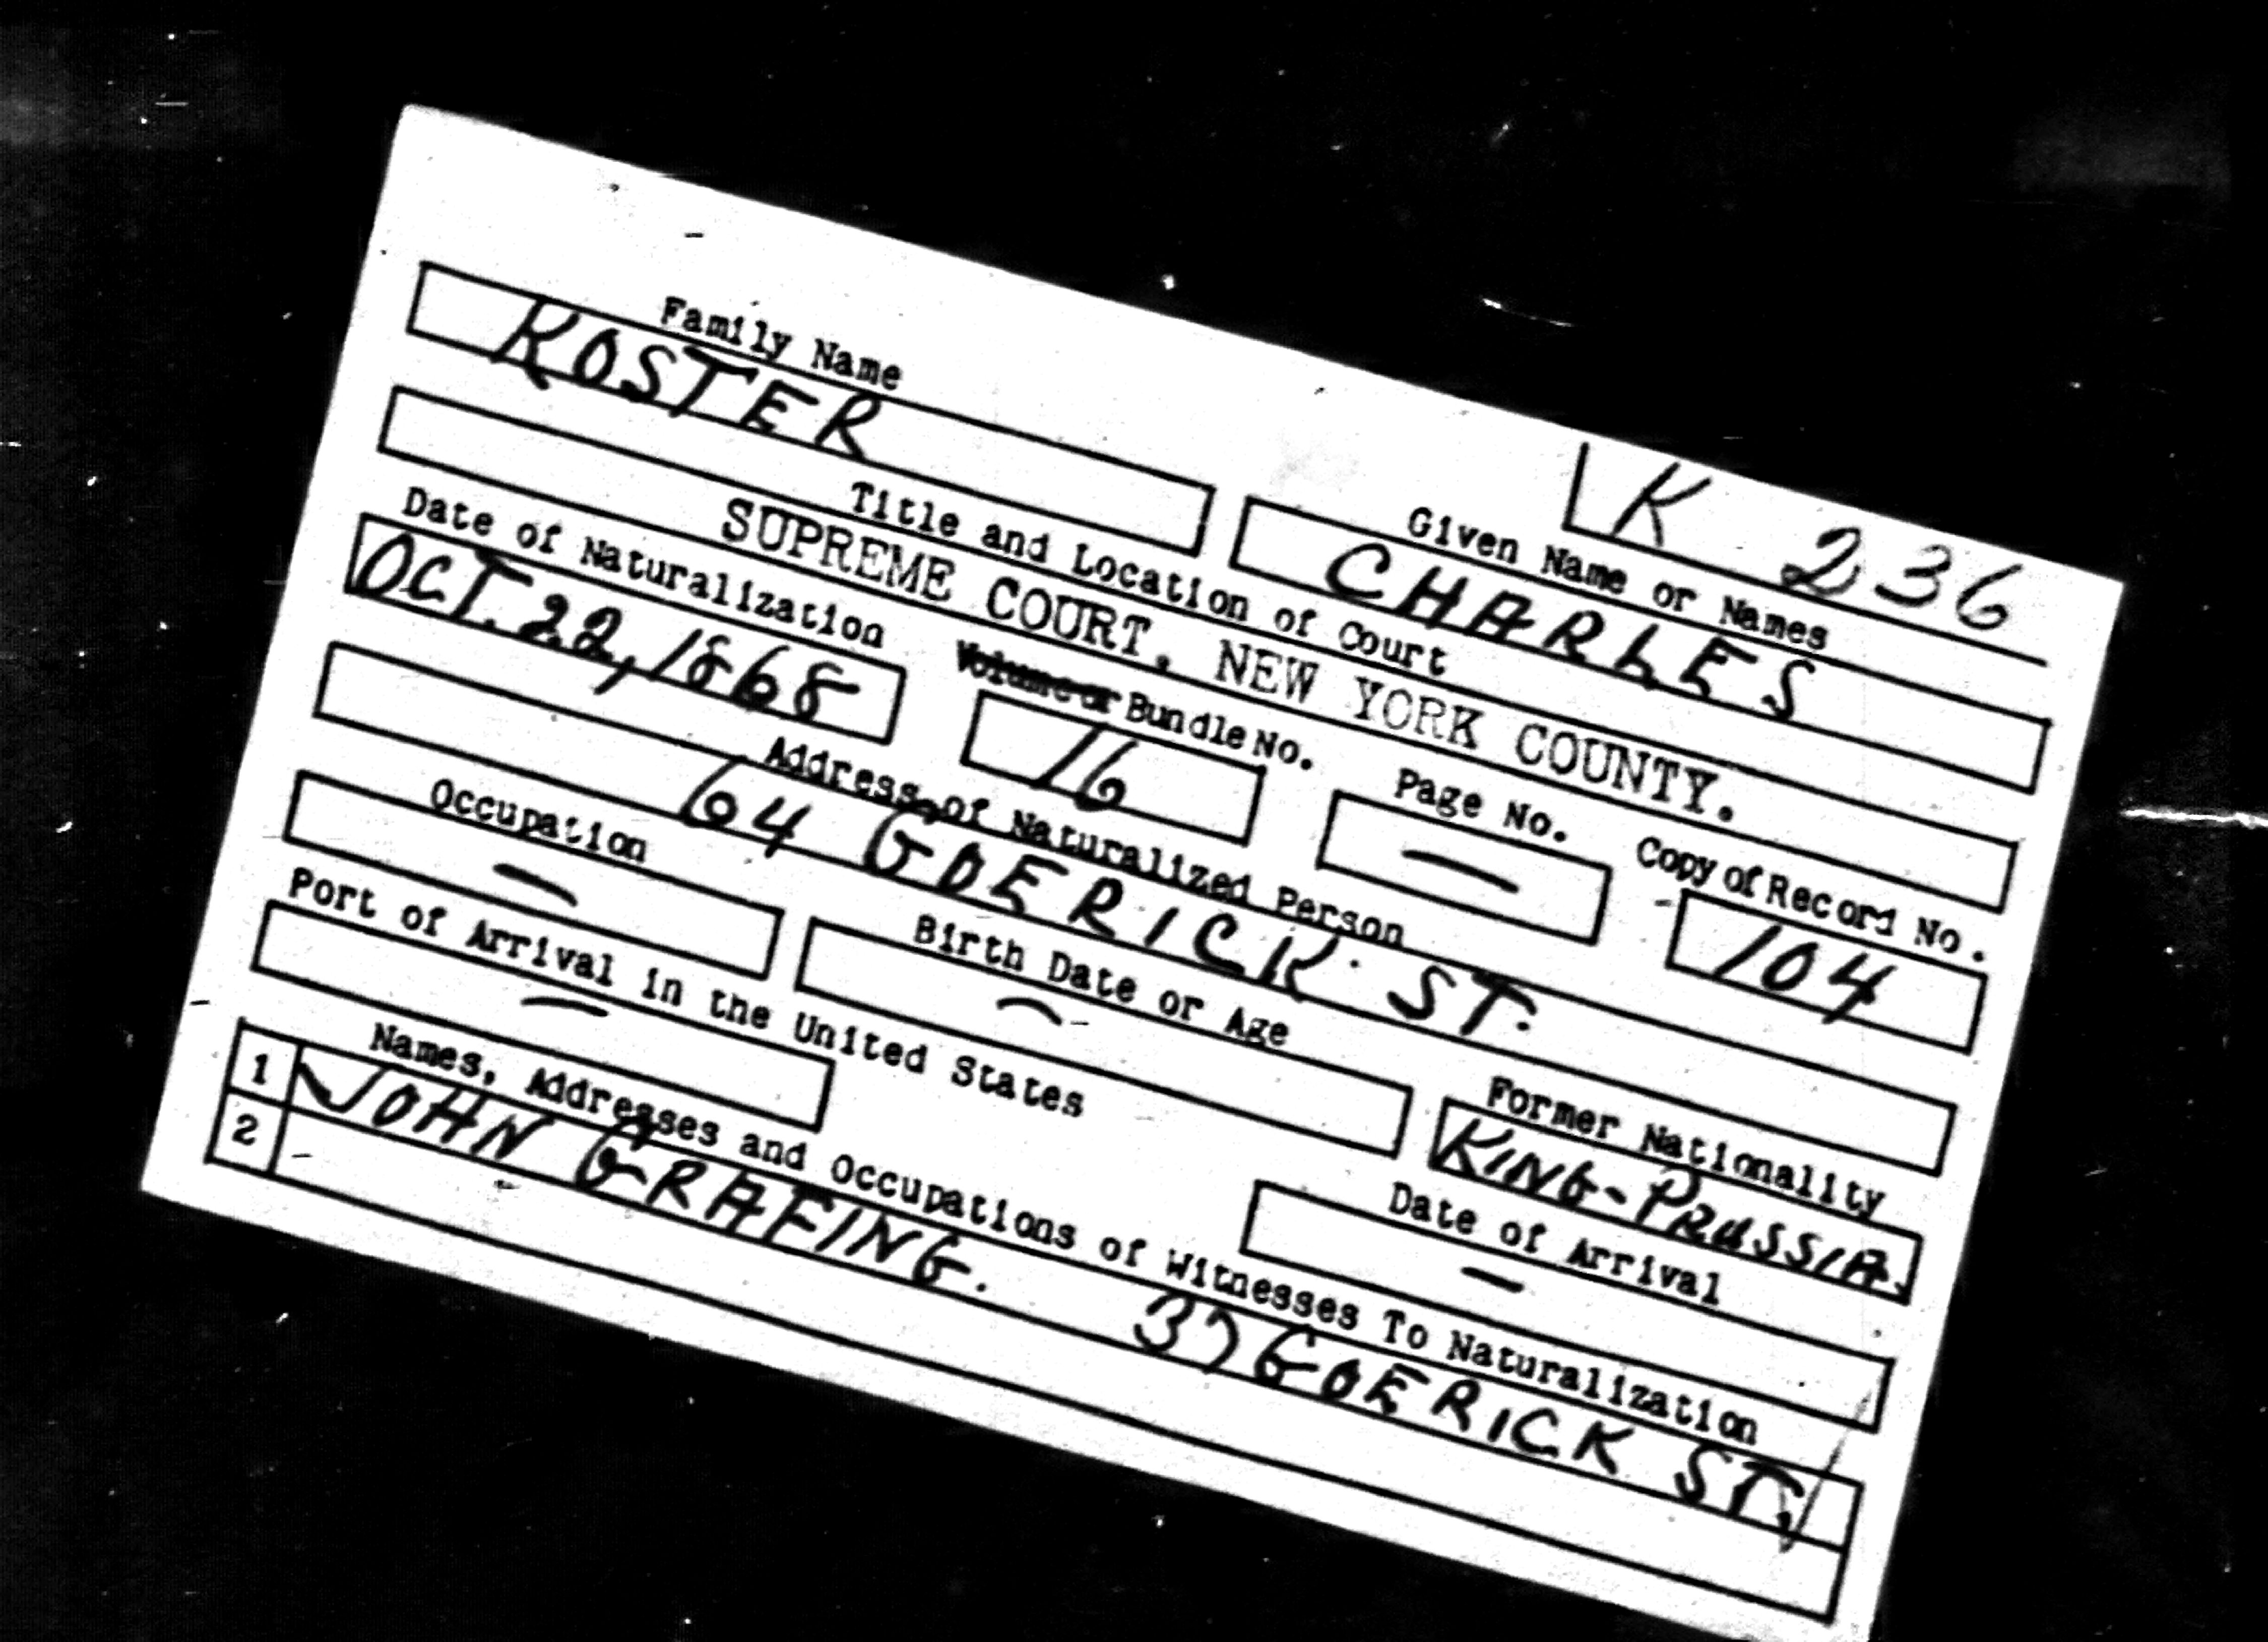 K 236
Family Name
KOSTER
Given Name or Names
CHARLES
Title and Location of Court
SUPREME COURT, NEW YORK COUNTY.
Date of Naturalization
OCT. 22, 1868
Volume or Bundle No.
16
Page No.
—
Copy of Record No.
104
Address of Naturalized Person
64 GOERICK ST.
Occupation
—
Birth Date or Age
—
Former Nationality
KING-PRUSSIA.
Port of Arrival in the United States
—
Date of Arrival
—
Names, Addresses and Occupations of Witnesses To Naturalization
1 JOHN GRAFING. 37 GOERICK ST.
2 -